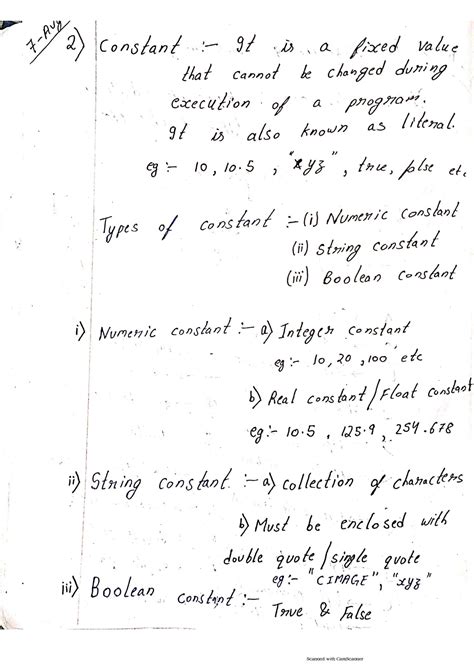 7-Aug
2) Constant :- It is a fixed value
that cannot be changed during
execution of a program.
It is also known as literal.
eg :- 10, 10.5, "xyz", true, false etc
Types of constant :- (i) Numeric constant
(ii) String constant
(iii) Boolean constant
i) Numeric constant :- a) Integer constant
eg :- 10, 20, 100 etc
b) Real constant / Float constant
eg :- 10.5, 125.9, 254.678
ii) String constant :- a) collection of characters
b) Must be enclosed with
double quote / single quote
eg :- "CIMAGE", "xyz"
iii) Boolean constant :-
True & False
Scanned with CamScanner